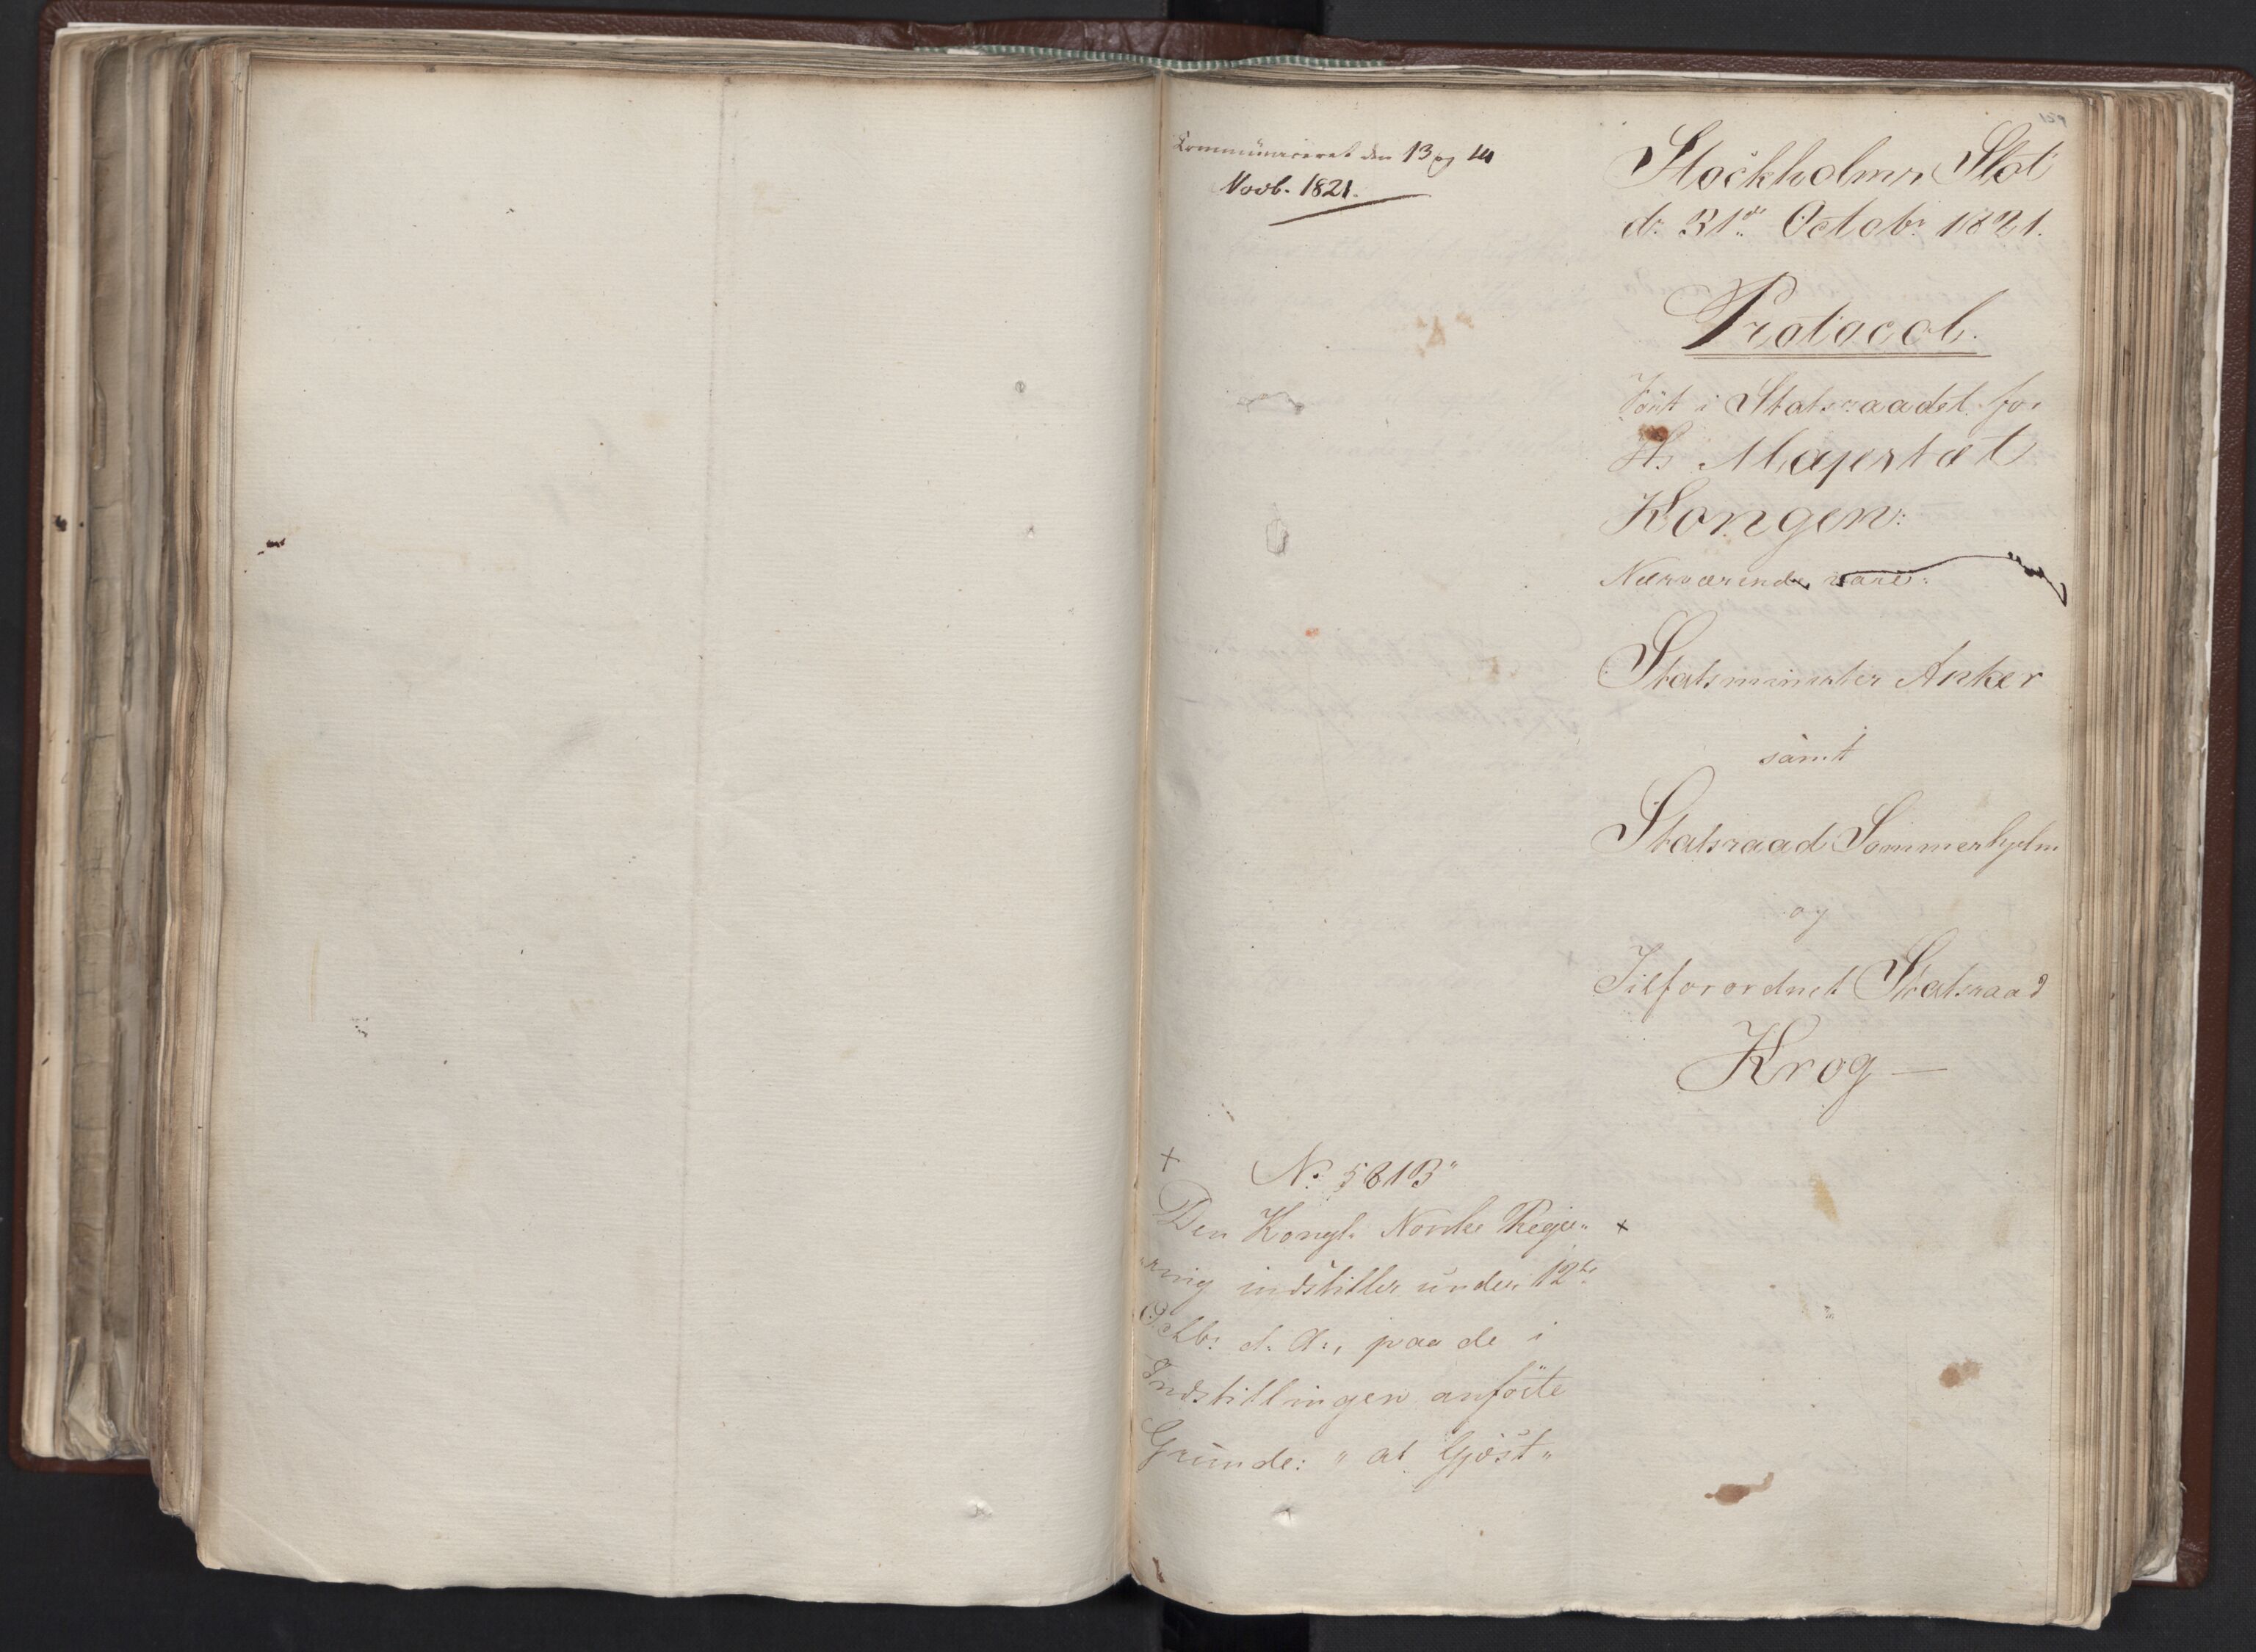 Kommuniceret den 13 og 14
Novb. 1821.
Stockholms Slot
d: 31te Octobr 1821.
Protocol.
Fört i Statsraadet for
Hs Majestæt
Kongen:
Nærværende vare:
Statsminister Anker
samt
Statsraad Sommerhjelm
og
Tilforordnet Statsraad
Krog —
+ No 5813"
Den Kongl. Norske Reje„ +
„ring indstiller under 12te
Octbr d. A:, paa de i
Indstillingen anförte
Grunde: „at Gjöst„